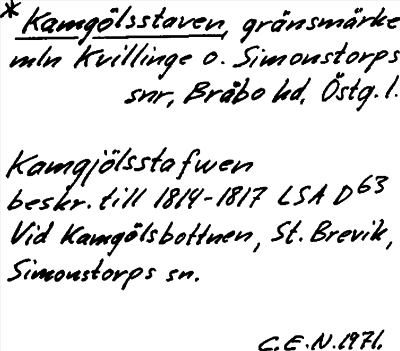 * Kamgölsstaven, gränsmärke
mln Kvillinge o. Simonstorps
snr, Bråbo hd, Östg. l.
Kamgjölsstafwen
beskr. till 1814-1817 LSA D63
Vid Kamgölsbottnen, St. Brevik,
Simonstorps sn.
C.E.N. 1971.